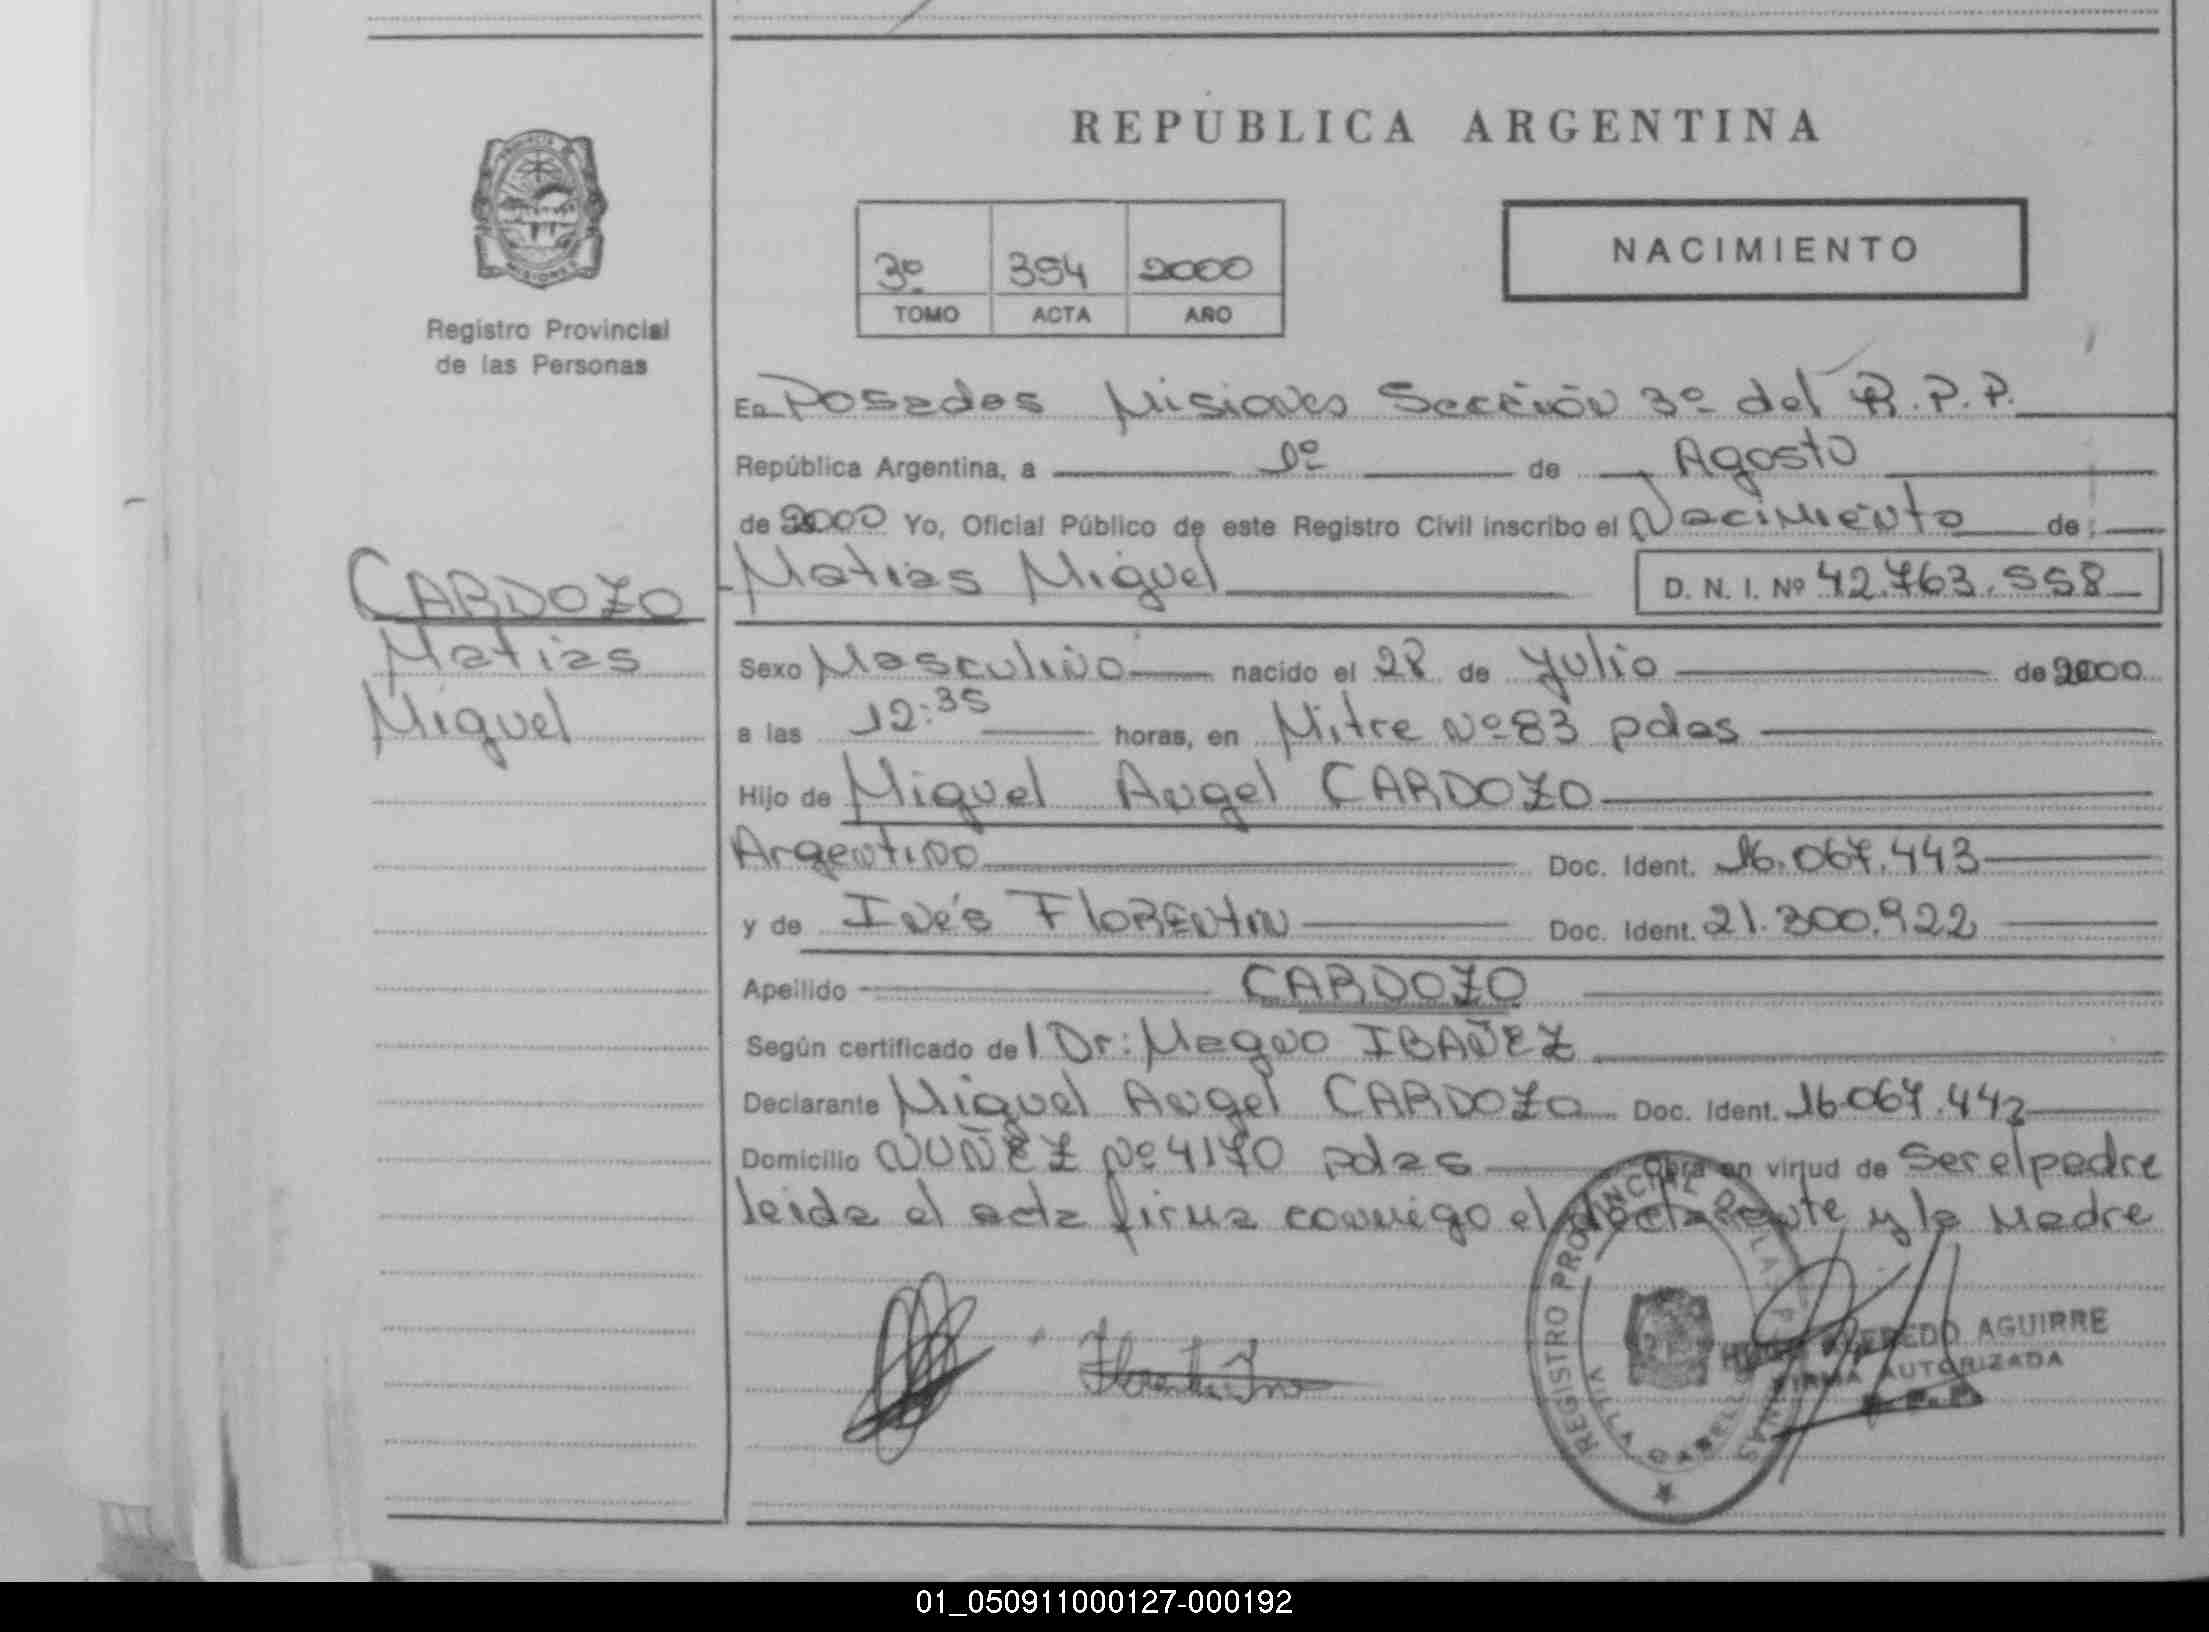 REPUBLICA ARGENTINA
3º 354 2000
TOMO ACTA AÑO
NACIMIENTO
PROVINCIA
MISIONES
Registro Provincial
de las Personas
En Posadas Misiones Sección 3º del R.P.P.
República Argentina, a 1º de Agosto
de 2000 Yo, Oficial Público de este Registro Civil inscribo el Nacimiento de:
Matias Miguel D. N. I. Nº 42.763.558
CARDOZO
Matias
Miguel
Sexo Masculino nacido el 28 de Julio de 2000
a las 12:35 horas, en Mitre Nº 83 pdas
Hijo de Miguel Angel CARDOZO
Argentino Doc. Ident. 16.067.443
y de Inés FLORENTIN Doc. Ident. 21.300.922
Apellido CARDOZO
Según certificado del Dr: Magno IBAÑEZ
Declarante Miguel Angel CARDOZO Doc. Ident. 16067.443
Domicilio NUÑEZ Nº 4170 pdas Obra en virtud de Ser el padre
leida el acta firma conmigo el declarante y la madre
REGISTRO PROVINCIAL DE LAS PERSONAS
VILLA CABELLO
AGUIRRE
FIRMA AUTORIZADA
01_050911000127-000192